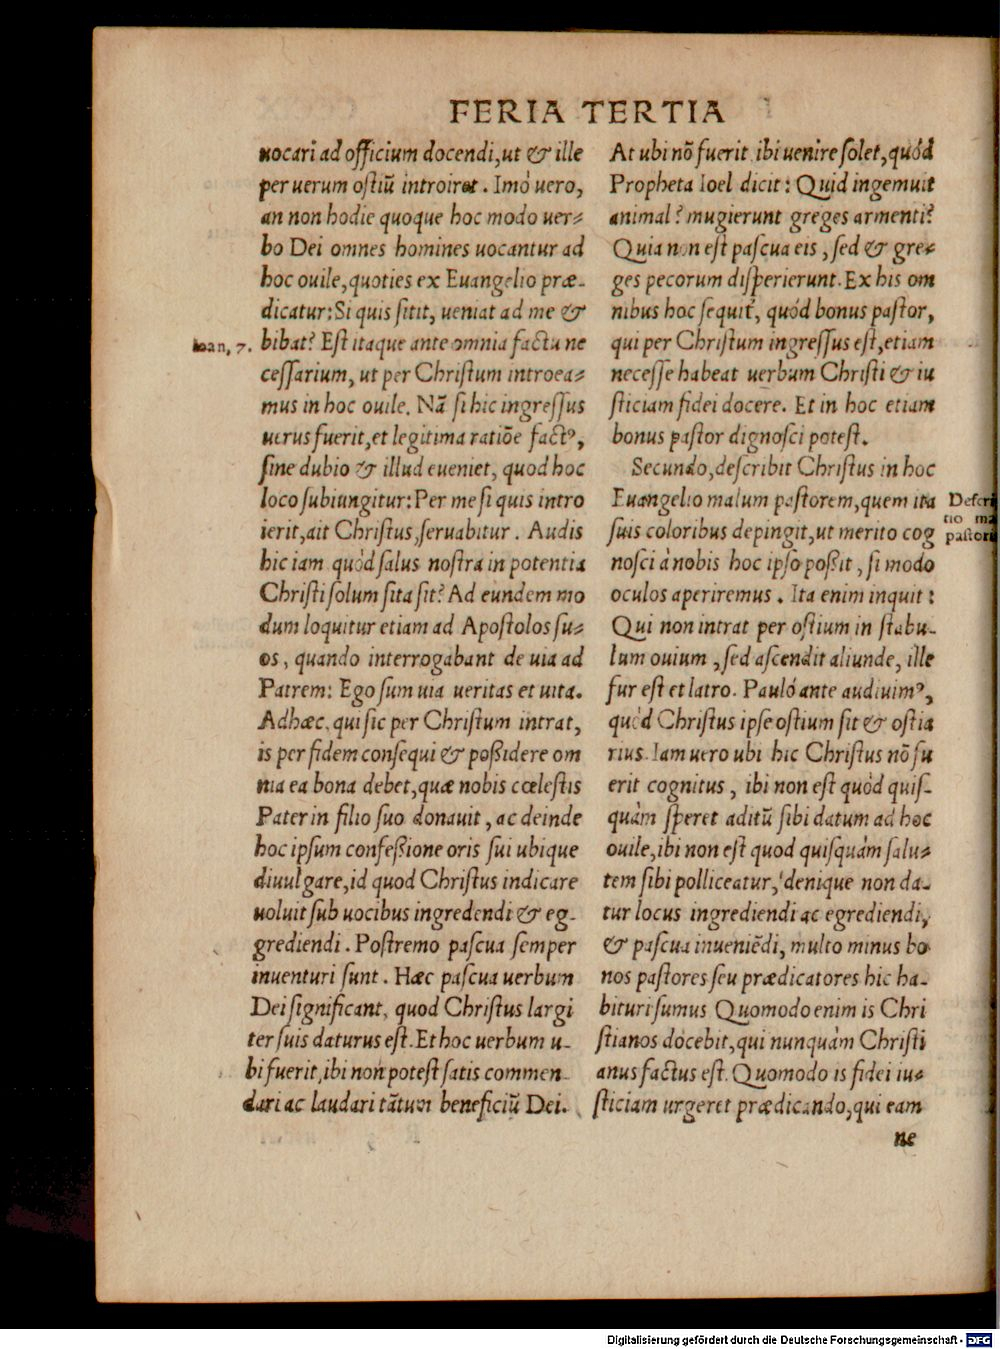 FERIA TERTIA
uocari ad officium docendi, ut & ille
per uerum ostiū introiret. Imò uero,
an non hodie quoque hoc modo uer⸗
bo Dei omnes homines uocantur ad
hoc ouile, quoties ex Euangelio præ-
dicatur: Si quis sitit, ueniat ad me &
Ioan, 7.
bibat? Est itaque ante omnia factu ne
cessarium, ut per Christum introea⸗
mus in hoc ouile. Nā si hic ingressus
uerus fuerit, et legitima ratiōe factꝰ,
sine dubio & illud eueniet, quod hoc
loco subiungitur: Per me si quis intro
ierit, ait Christus, seruabitur. Audis
hic iam quòd salus nostra in potentia
Christi solum sita sit? Ad eundem mo
dum loquitur etiam ad Apostolos su⸗
os, quando interrogabant de uia ad
Patrem: Ego sum uia ueritas et uita.
Adhæc, qui sic per Christum intrat,
is per fidem consequi & poßidere om
nia ea bona debet, quæ nobis cœlestis
Pater in filio suo donauit, ac deinde
hoc ipsum confeßione oris sui ubique
diuulgare, id quod Christus indicare
uoluit sub uocibus ingredendi & eg-
grediendi. Postremo pascua semper
inuenturi sunt. Hæc pascua uerbum
Dei significant, quod Christus largi
ter suis daturus est. Et hoc uerbum u-
bi fuerit, ibi non potest satis commen-
dari ac laudari tātum beneficiū Dei.
At ubi nō fuerit ibi uenire solet, quòd
Propheta Ioel dicit: Quid ingemuit
animal? mugierunt greges armenti?
Quia non est pascua eis, sed & gre⸗
ges pecorum disperierunt. Ex his om
nibus hoc sequit', quòd bonus pastor,
qui per Christum ingressus est, etiam
necesse habeat uerbum Christi & iu
sticiam fidei docere. Et in hoc etiam
bonus pastor dignosci potest.
Secundo, describit Christus in hoc
Euangelio malum pastorem, quem ita
suis coloribus depingit, ut merito cog
nosci à nobis hoc ipso poßit, si modo
oculos aperiremus. Ita enim inquit:
Descri
tio ma
pastori
Qui non intrat per ostium in stabu-
lum ouium, sed ascendit aliunde, ille
fur est et latro. Paulò ante audiuimꝰ,
quòd Christus ipse ostium sit & ostia
rius. Iam uero ubi hic Christus nō fu
erit cognitus, ibi non est quòd quis-
quàm speret aditū sibi datum ad hoc
ouile, ibi non est quod quisquàm salu⸗
tem sibi polliceatur, denique non da-
tur locus ingrediendi ac egrediendi,
& pascua inueniēdi, multo minus bo
nos pastores seu prædicatores hic ha-
bituri sumus Quomodo enim is Chri
stianos docebit, qui nunquàm Christi
anus factus est. Quomodo is fidei iu⸗
sticiam urgeret prædicando, qui eam
ne
Digitalisierung gefördert durch die Deutsche Forschungsgemeinschaft - DFG